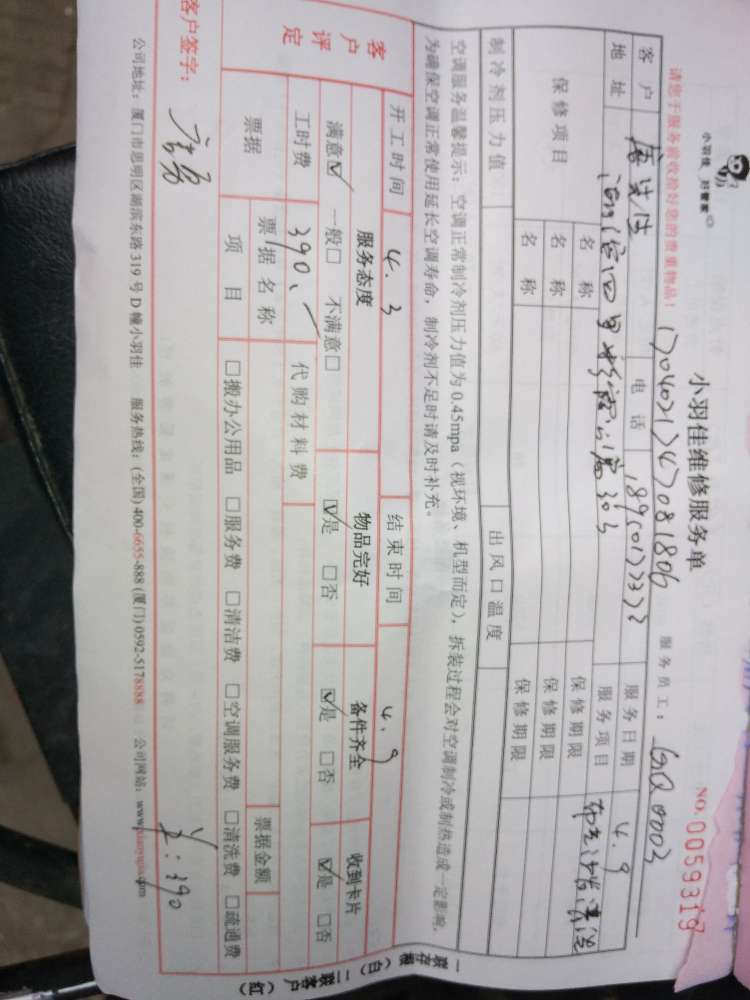 小羽佳 好管家
小羽佳维修服务单
NO.
请您于服务前收拾好您的贵重物品！
服务员工：
客户 电话 服务日期 4.9
地址 服务项目
保修项目 名称 保修期限
名称 保修期限
名称 保修期限
制冷剂压力值 出风口温度
空调服务温馨提示：空调正常制冷剂压力值为0.45mpa（视环境、机型而定），拆装过程会对空调制冷或制热造成一定影响，
为确保空调正常使用延长空调寿命，制冷剂不足时请及时补充。
开工时间 4.3 结束时间 4.9
客户评定 服务态度 物品完好 备件齐全 收到卡片
满意☑ 一般□ 不满意□ ☑是 □否 ☑是 □否 ☑是 □否
工时费 390. 代购材料费
票据 票据名称 票据金额
项目 □搬办公用品 □服务费 □清洁费 □空调服务费 □清洗费 □疏通费
客户签字： ￥：390
公司地址：厦门市思明区湖滨东路319号D幢小羽佳 服务热线：(全国) 400-6655-888 (厦门) 0592-5178888 公司网站：
一联存根（白）二联客户（红）